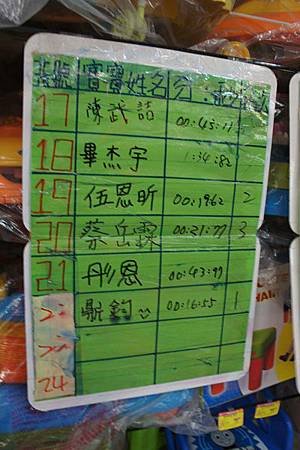 寶寶姓名
17 陳武喆 00:43:11
18 畢杰宇 1:34:82
19 伍恩昕 00:1962 2
20 蔡岳霖 00:21:77 3
21 彤恩 00:43:97
鈞 00:16:55 1
24